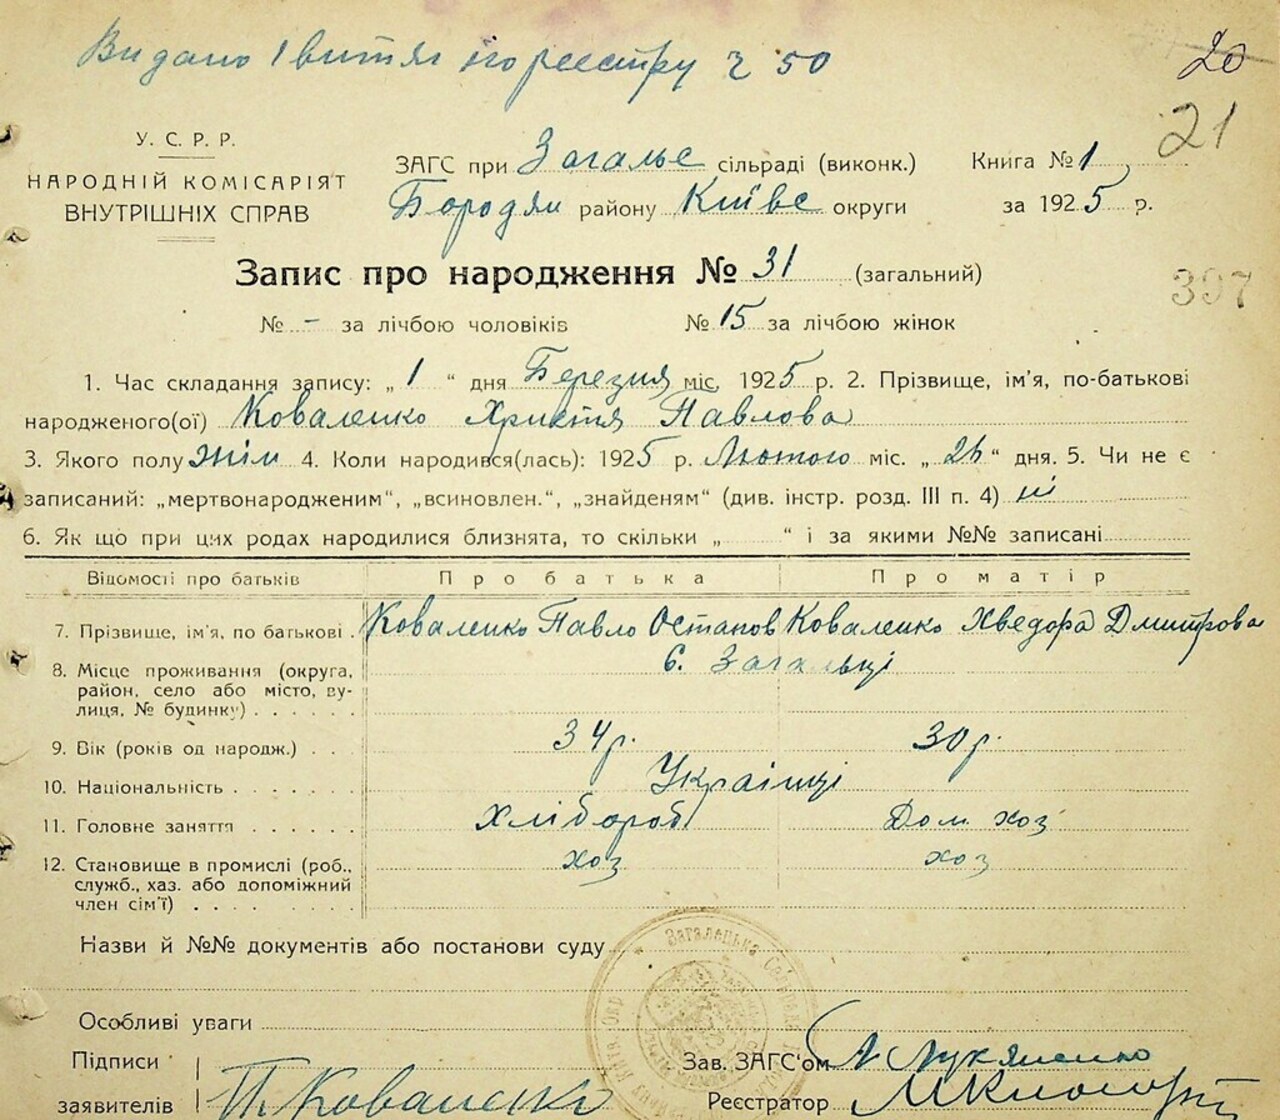 Видано 1 витяг із реєстру ч 50
20
21
У. С. Р. Р.
НАРОДНІЙ КОМІСАРІЯТ
ВНУТРІШНІХ СПРАВ
ЗАГС при Загальє сільраді (виконк.) Книга № 1
Бородян району Київс округи за 1925 р.
Запис про народження № 31 (загальний)
397
№ - за лічбою чоловіків № 15 за лічбою жінок
1. Час складання запису: „ 1 “ дня Березня міс. 1925 р. 2. Прізвище, ім'я, по-батькові
народженого(ої) Коваленко Христя Павлова
3. Якого полу жін 4. Коли народився(лась): 1925 р. Лютого міс. „ 26 “ дня. 5. Чи не є
записаний: „мертвонародженим“, „всиновлен.“, „знайденям“ (див. інстр. розд. III п. 4) ні
6. Як що при цих родах народилися близнята, то скільки „ “ і за якими №№ записані
Відомості про батьків Про батька Про матір
7. Прізвище, ім'я, по батькові Коваленко Павло Остапов Коваленко Хведора Дмитрова
8. Місце проживання (округа, с. Загальці
район, село або місто, ву-
лиця, № будинку)
9. Вік (років од народж.) 34 р. 30 р.
10. Національність Українці
11. Головне заняття Хлібороб Дом. хоз
12. Становище в промислі (роб., хоз хоз
служб., хаз. або допоміжний
член сім'ї)
Назви й №№ документів або постанови суду
Загалецька
Особливі уваги
Підписи Зав. ЗАГС'ом Лукяненко
заявителів П. Коваленко Реєстратор